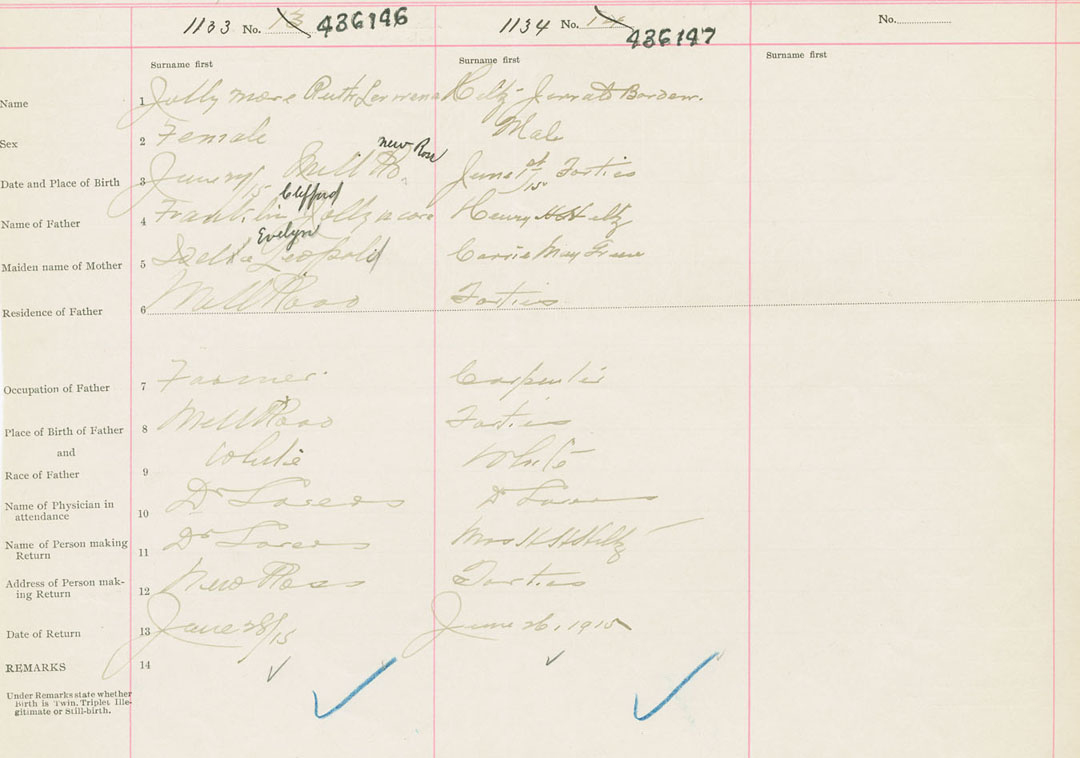 1133 No. 13 436146
1134 No. 14 436147
No.
Surname first
Surname first
Surname first
Name
1 Jollymore Ruth
Hiltz Borden.
Sex
2 Female
Male
Date and Place of Birth
3 June /15 Mill Rd. New Ross
June 1st/15 Forties
Name of Father
4 Franklin Clifford Jollymore
Henry H Hiltz
Maiden name of Mother
5 Evelyn Leopold
Carrie May
Residence of Father
6 Mill Road
Forties
Occupation of Father
7 Farmer.
Carpenter
Place of Birth of Father
8 Mill Road
Forties
and
Race of Father
9 White
White
Name of Physician in
attendance
10 Dr
Dr
Name of Person making
Return
11 Dr
Mrs H H Hiltz
Address of Person mak-
ing Return
12 New Ross
Forties
Date of Return
13 June 28/15
June 26, 1915
REMARKS
14
Under Remarks state whether
Birth is Twin. Triplet Ille-
gitimate or Still-birth.